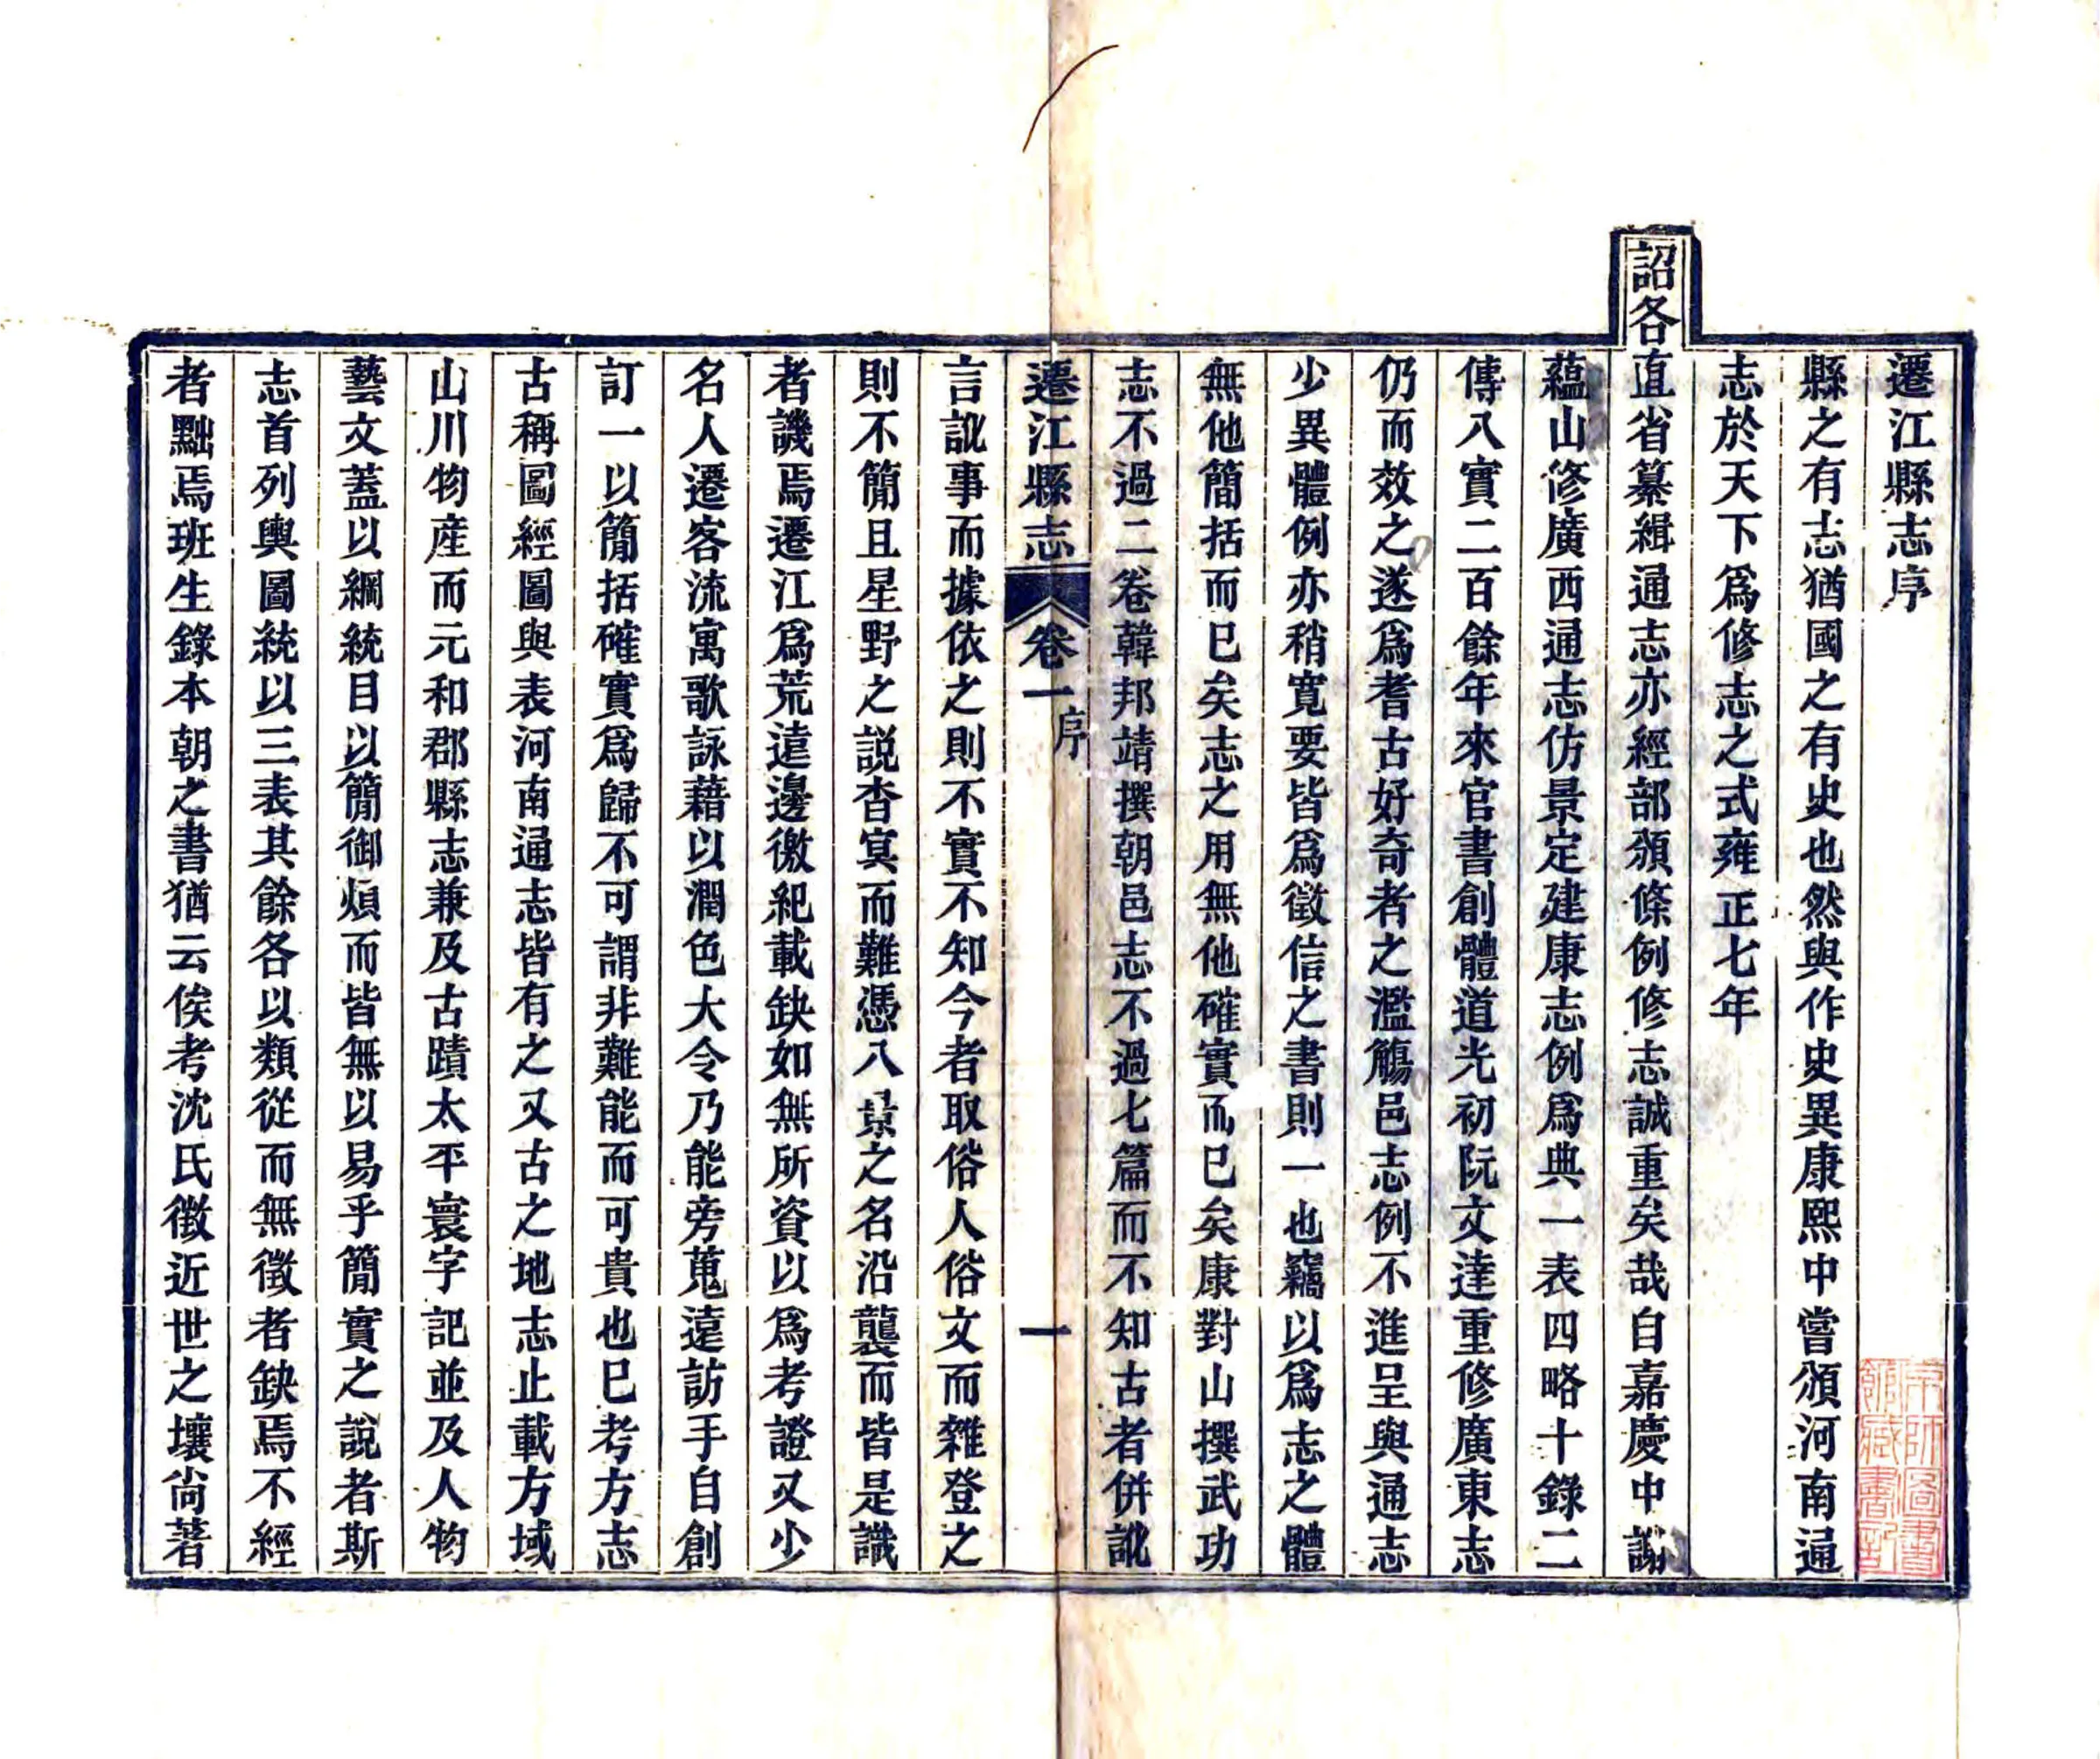 遷江縣志序
縣之有志猶國之有史也然與作史異康熙中嘗頒河南通
志於天下爲修志之式雍正七年
詔各直省纂緝通志亦經部頒條例修志誠重矣哉自嘉慶中謝
蘊山修廣西通志仿景定建康志例爲典一表四略十錄二
傳八實二百餘年來官書創體道光初阮文達重修廣東志
仍而效之遂爲耆古好奇者之濫觴邑志例不進呈與通志
少異體例亦稍寬要皆爲徵信之書則一也竊以爲志之體
無他簡括而已矣志之用無他確實而已矣康對山撰武功
志不過二卷韓邦靖撰朝邑志不過七篇而不知古者併訛
遷江縣志 卷一 序 一
言訛事而據依之則不實不知今者取俗人俗文而雜登之
則不簡且星野之說杳冥而難憑八景之名沿襲而皆是識
者譏焉遷江爲荒遠邊徼紀載缺如無所資以爲考證又少
名人遷客流寓歌詠藉以潤色大令乃能旁蒐遠訪手自創
訂一以簡括確實爲歸不可謂非難能而可貴也已考方志
古稱圖經圖與表河南通志皆有之又古之地志止載方域
山川物產而元和郡縣志兼及古蹟太平寰宇記並及人物
藝文蓋以綱統目以簡御煩而皆無以易乎簡實之說者斯
志首列輿圖統以三表其餘各以類從而無徵者缺焉不經
者黜焉班生錄本朝之書猶云俟考沈氏徵近世之壤尚著
京師圖書
館藏書記